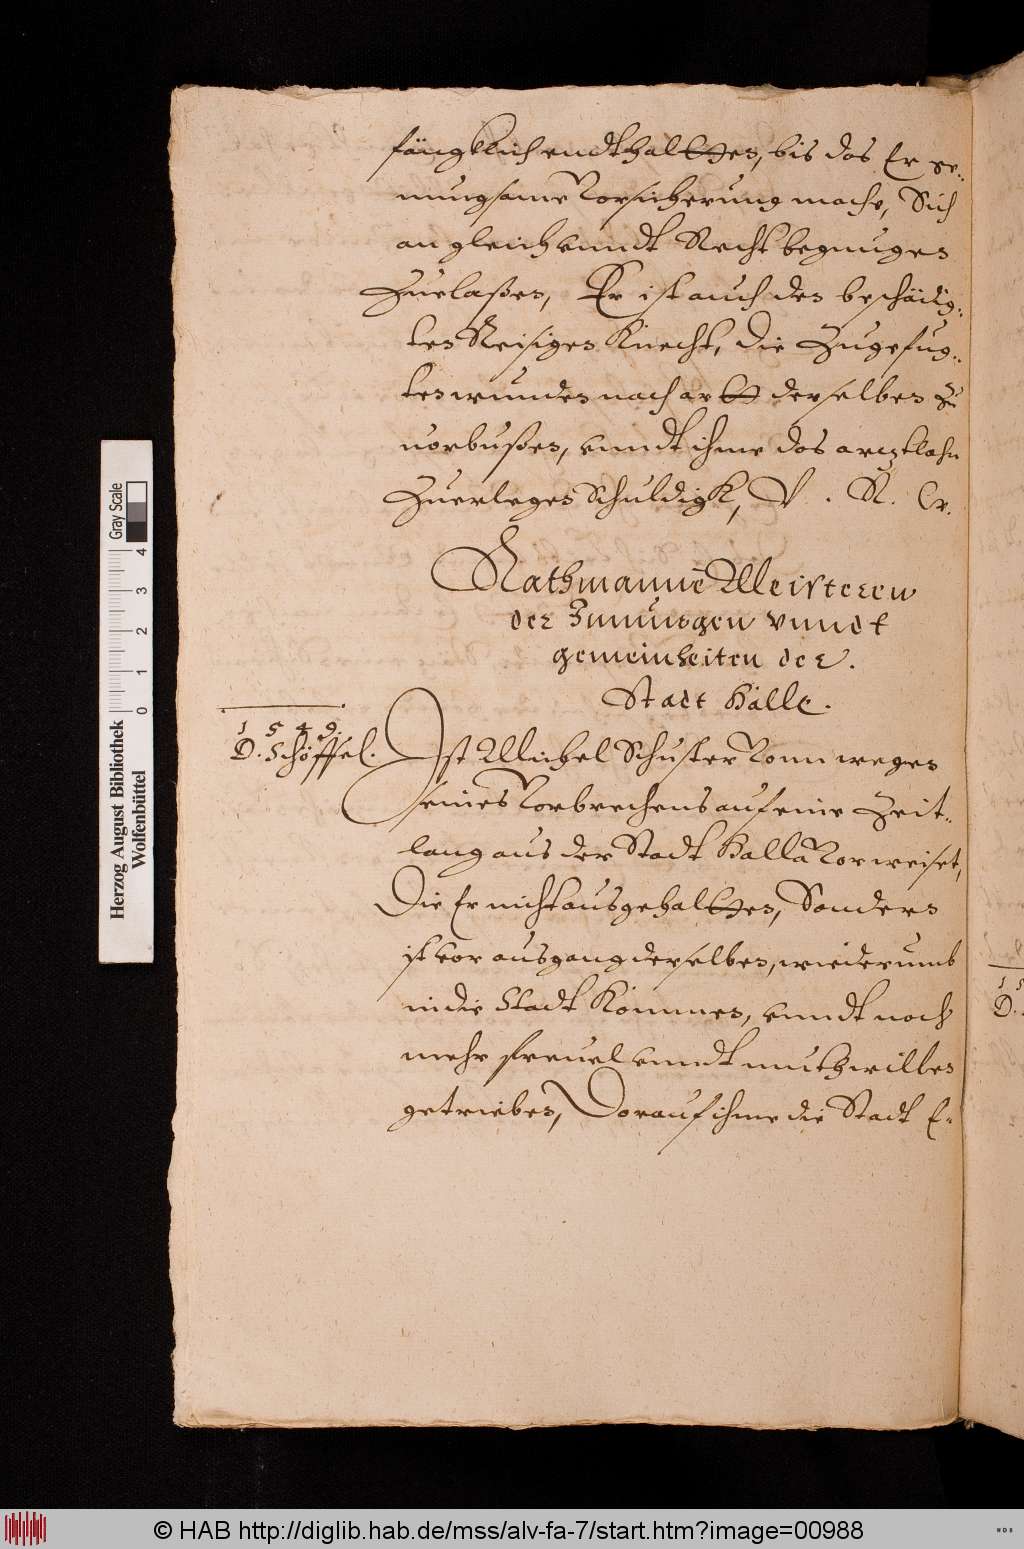 fängklich endthaltten, bis das Er ge-
nungsame Vorsicherung mache, Sich
an gleich vnndt Recht begnugen
Zuelaßen, Er ist auch den beschädig-
ten Reisigen Knecht, die Zugefug-
ten wunden nach artt derselben zu
uorbußen, vnndt ihme das arztlohn
Zuerlegen Schuldigk, V. R. W.
Rathmanne Meisteren
der Innungen vnndt
gemeinheiten der
Stadt Halle.
1 5 4 9.
D. Schöffel.
Ist Michel Schuster Vonn wegen
seines Vorbrechens auf eine Zeit-
lang aus der Stadt Halla Vorweiset,
Die Er nicht ausgehaltten, Sondern
ist vor ausgang derselben, wiederumb
in die Stadt Kommen, vnndt noch
mehr freuel vnndt muthwillen
getrieben, Darauf ihme die Stadt E-
1 5
D.
Gray Scale
0 1 2 3 4
Herzog August Bibliothek
Wolfenbüttel
© HAB http://diglib.hab.de/mss/alv-fa-7/start.htm?image=00988